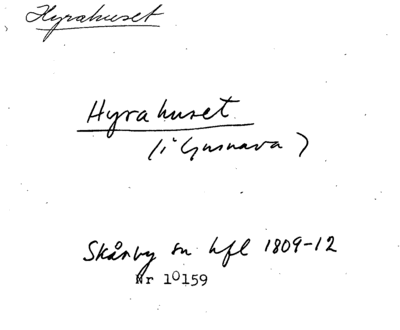 Hyrahuset
Hyrahuset
(i Gusnava)
Skårby sn hfl 1809-12
Nr 10159